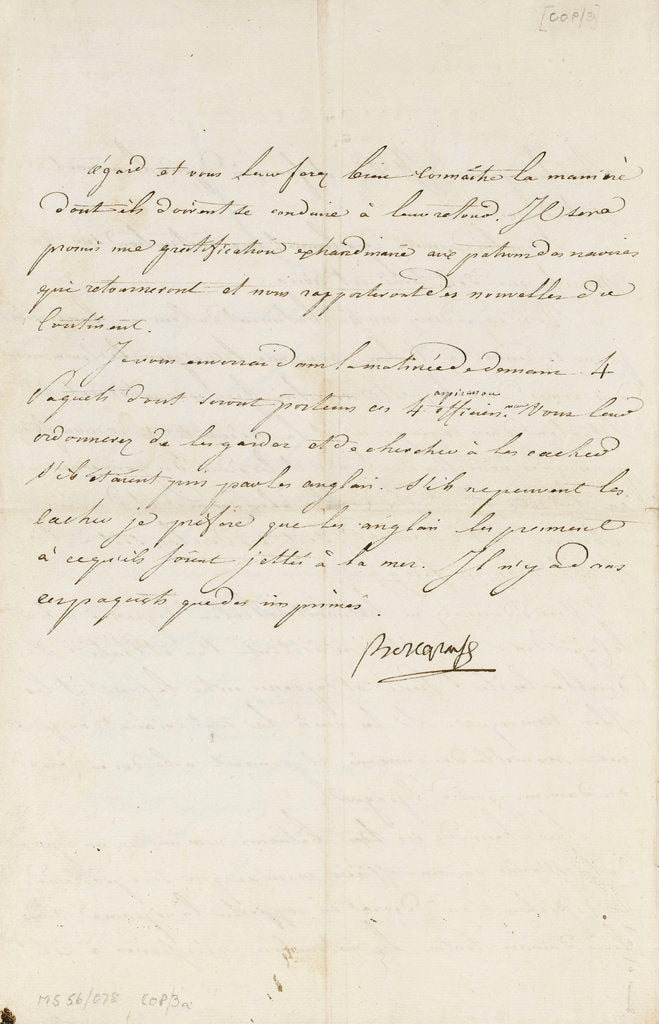 [COP/3]
égard et vous leur ferez bien connaître la manière
dont ils doivent se conduire à leur retour. Il sera
promis une gratification extraordinaire aux patrons des navires
qui retourneront et nous rapporteront des nouvelles du
Continent.
Je vous enverrai dans la matinée de demain 4
Paquets dont seront porteurs ces 4 officiers. Vous leur
aspirans ou
ordonnerez de les garder et de chercher à les cacher
s'ils étaient pris par les anglais. S'ils ne peuvent les
cacher je préfère que les anglais les prennent
à ce qu'ils soient jettés à la mer. Il n'y a dans
ces paquets que des imprimés.
MS 56/078 COP/3a